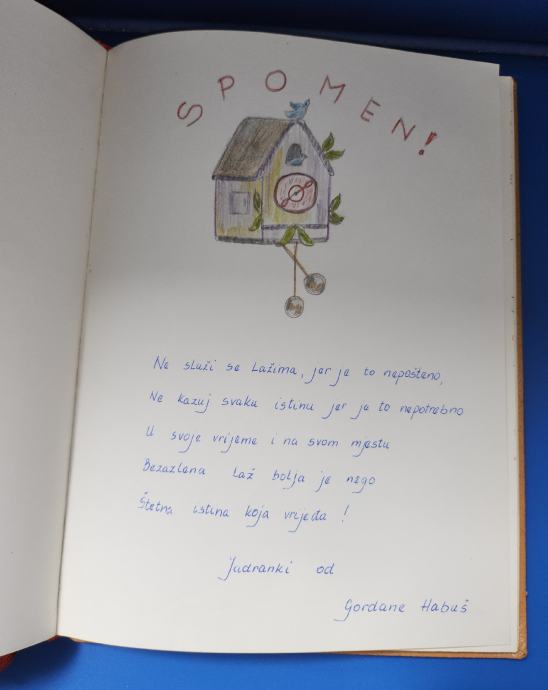 SPOMEN!
Ne služi se Lažima, jer je to nepošteno,
Ne kazuj svaku istinu jer je to nepotrebno
U svoje vrijeme i na svom mjestu
Bezazlena Laž bolja je nego
Štetna istina koja vrijeđa !
Jadranki od
Gordane Habuš